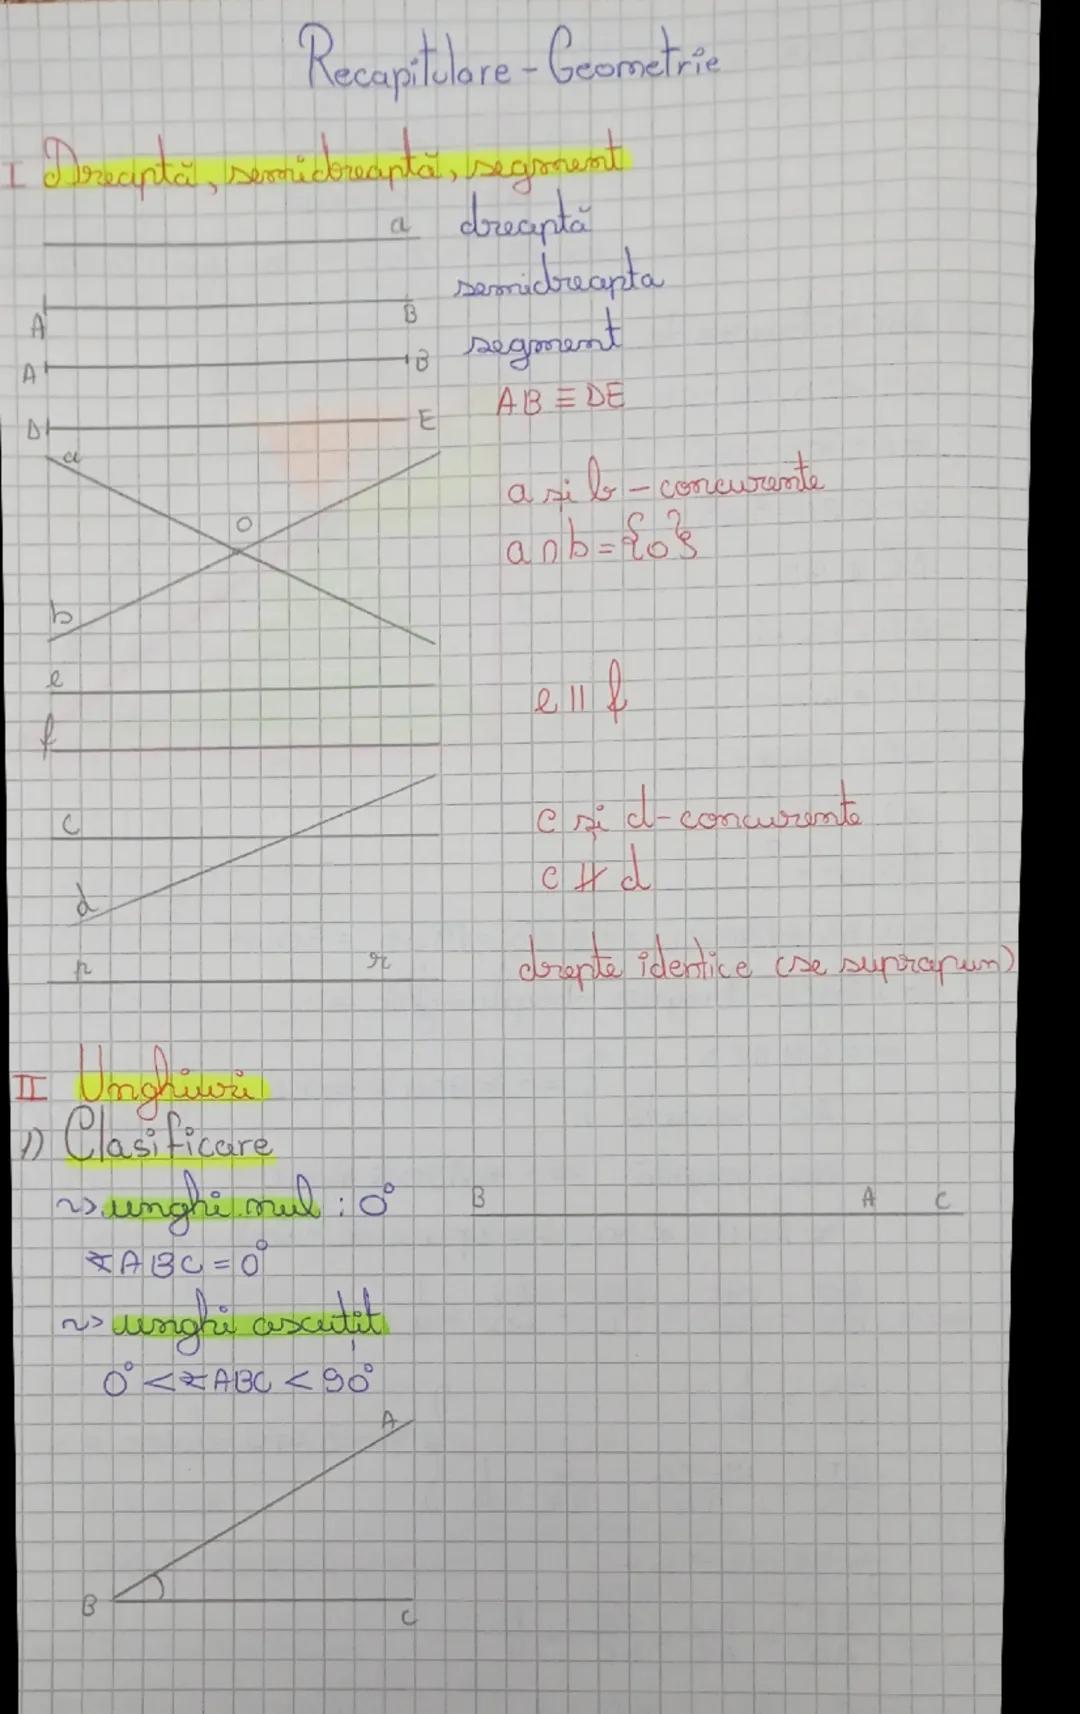 Recapitulare - Geometrie
I Dreaptă, semidreaptă, segment
a dreaptă
A B semidreapta
A B segment
D E AB ≡ DE
a
O
b
a și b - concurente
a ∩ b = {o}
e
f
e || f
c
d
c și d - concurente
c ∦ d
p r drepte identice (se suprapun)
II Unghiuri
1) Clasificare
~> unghi nul : 0° B A C
∢ABC = 0°
~> unghi ascuțit
0° < ∢ABC < 90°
A
B C